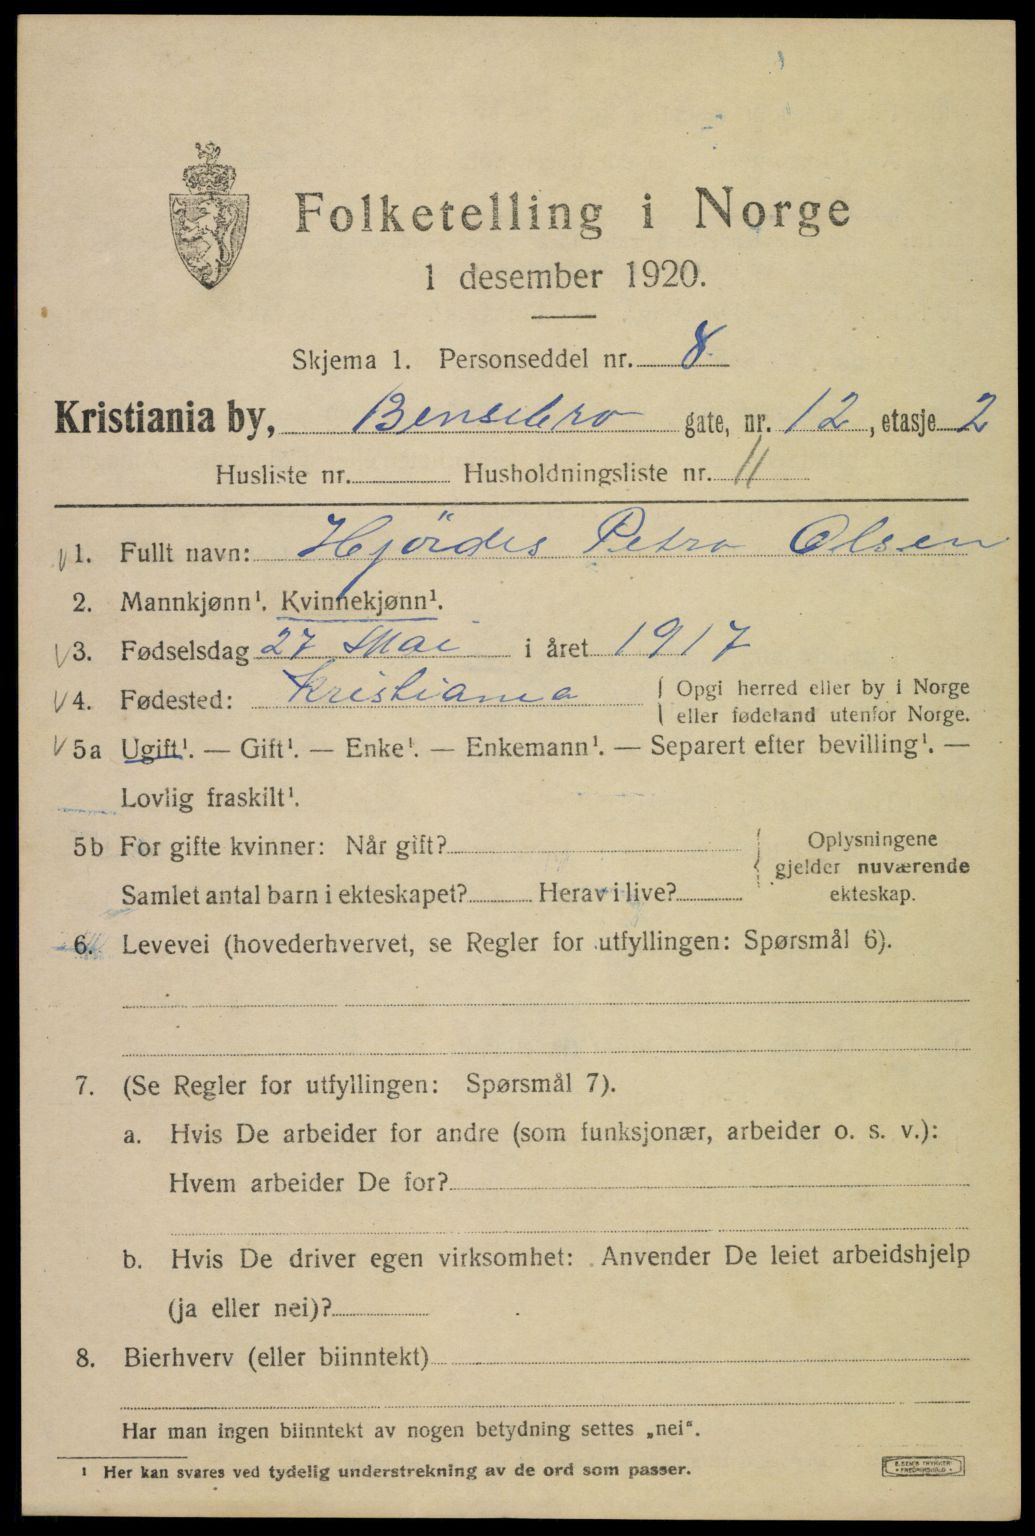 Folketelling i Norge
1 desember 1920.
Skjema 1. Personseddel nr. 8.
Kristiania by, Bensebro gate, nr. 12, etasje 2
Husliste nr. Husholdningsliste nr. 11
1. Fullt navn: Hjördis Petra Olsen
2. Mannkjønn¹. Kvinnekjønn¹.
3. Fødselsdag 27 Mai i året 1917
4. Fødested: Kristiania { Opgi herred eller by i Norge
eller fødeland utenfor Norge.
5a Ugift¹. — Gift¹. — Enke¹. — Enkemann¹. — Separert efter bevilling¹. —
Lovlig fraskilt¹.
5b For gifte kvinner: Når gift?
Samlet antal barn i ekteskapet? Herav i live?
Oplysningene
gjelder nuværende
ekteskap.
6. Levevei (hovederhvervet, se Regler for utfyllingen: Spørsmål 6).
7. (Se Regler for utfyllingen: Spørsmål 7).
a. Hvis De arbeider for andre (som funksjonær, arbeider o. s. v.):
Hvem arbeider De for?
b. Hvis De driver egen virksomhet: Anvender De leiet arbeidshjelp
(ja eller nei)?
8. Bierhverv (eller biinntekt)
Har man ingen biinntekt av nogen betydning settes „nei".
¹ Her kan svares ved tydelig understrekning av de ord som passer.